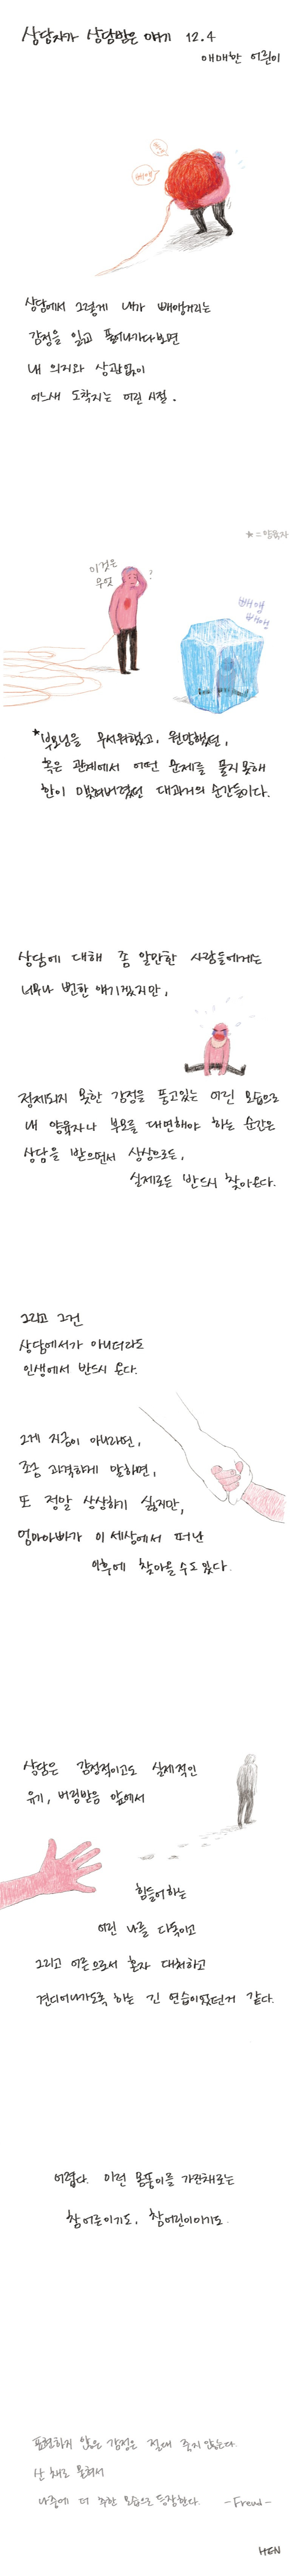 상담자가 상담받은 얘기 12.4
애매한 어린이
빼앵
빼앵
상담에서 그렇게 내가 빼앵거리는
감정을 잃고 풀어나가다보면
내 의지와 상관없이
어느새 도착지는 어린 시절.
★=양육자
이것은
무엇
?
빼앵
빼앵
★부모님을 무서워했고, 원망했던,
혹은 관계에서 어떤 문제를 풀지 못해
한이 맺혀버렸던 대과거의 순간들이다.
상담에 대해 좀 알만한 사람들에게는
너무나 뻔한 얘기겠지만,
정제되지 못한 감정을 품고있는 어린 모습으로
내 양육자나 부모를 대면해야 하는 순간은
상담을 받으면서 상상으로든,
실제로든 반드시 찾아온다.
그리고 그건
상담에서가 아니더라도
인생에서 반드시 온다.
그게 지금이 아니라면,
조금 과격하게 말하면,
또 정말 상상하기 싫지만,
엄마아빠가 이 세상에서 떠난
이후에 찾아올 수도 있다.
상담은 감정적이고도 실제적인
유기, 버림받음 앞에서
힘들어하는
어린 나를 다독이고
그리고 어른으로서 혼자 대처하고
견디어나가도록 하는 긴 연습이었던거 같다.
어렵다. 이런 몸뚱이를 가진채로는
참어른이기도, 참어린이이기도.
표현하지 않은 감정은 절대 죽지 않는다.
산 채로 묻혀서
나중에 더 추한 모습으로 등장한다. -Freud-
HEN